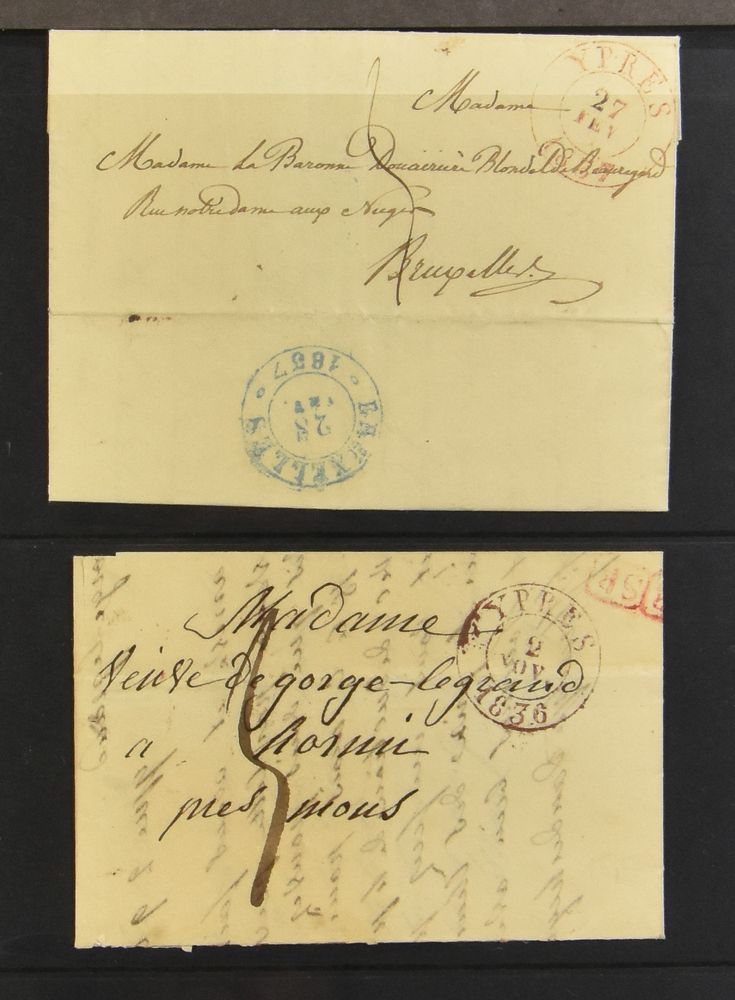 YPRES
27
FEV
Madame
Madame La Baronne Douairière Blondel de Beauregard
Rue notre dame aux Neiges
Bruxelles.
BRUXELLES
28
FEV.
1837
YPRES
2
NOV.
1836
Madame
Veuve Degorge-legrand
a hornu
pres mons